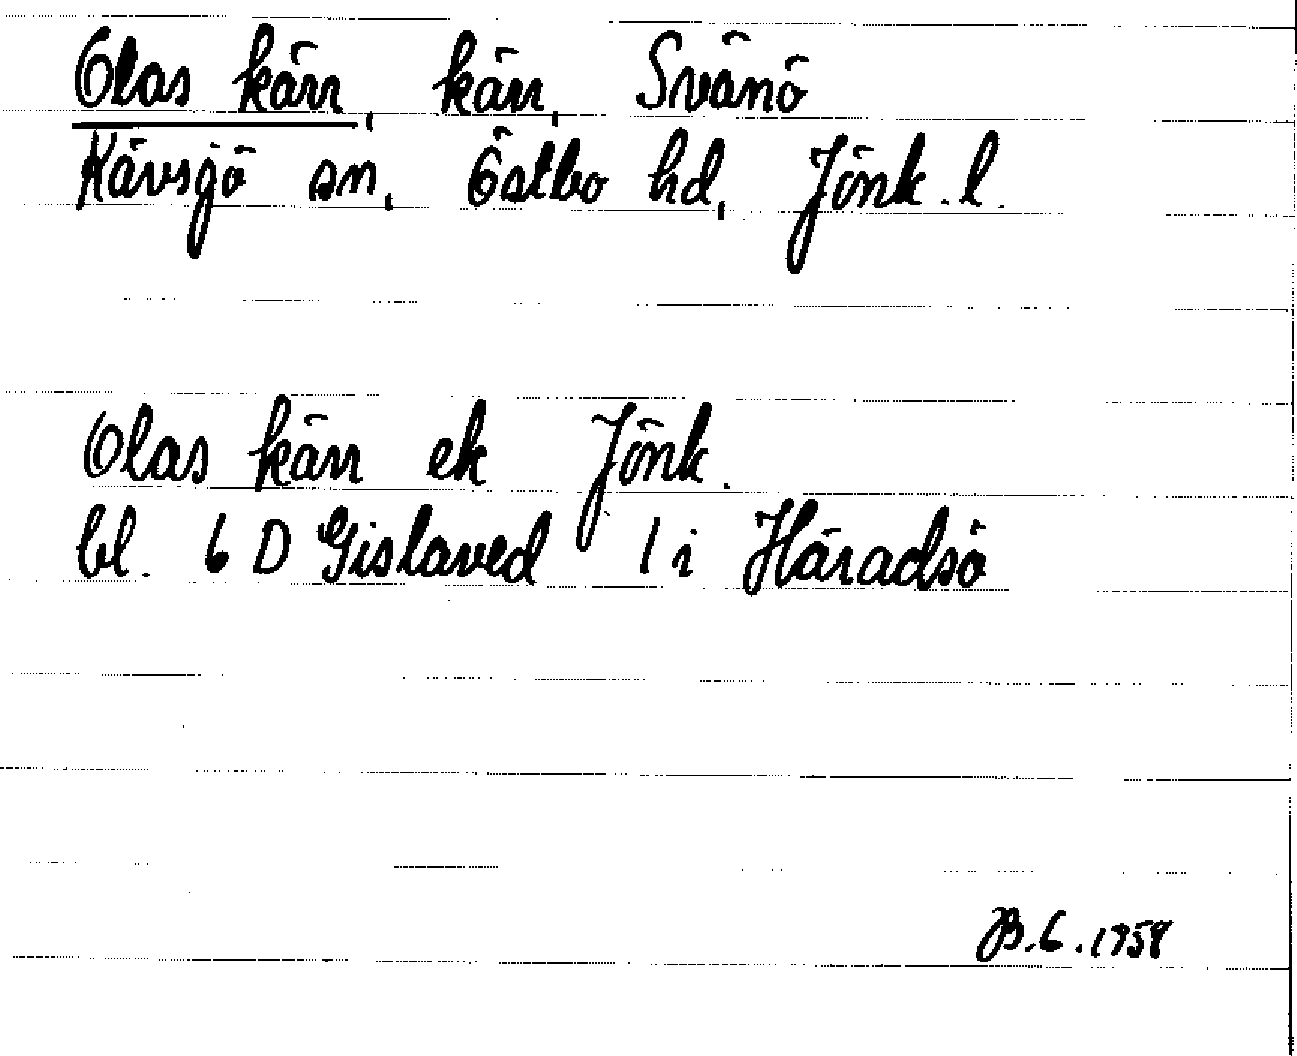 Olas kärr, kärr, Svänö
Kävsjö sn, Östbo hd, Jönk. l.
Olas kärr ek Jönk.
bl. 6 D Gislaved 1 i Häradsö
B.C. 1958